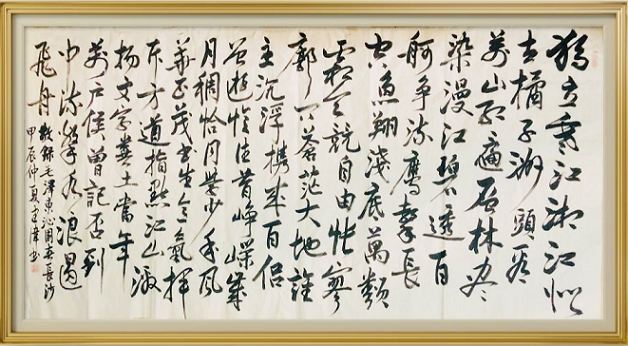 獨立寒秋湘江北
去橘子洲頭看
萬山紅遍層林盡
染漫江碧透百
舸爭流鷹擊長
空魚翔淺底萬類
霜天競自由悵寥
廓問蒼茫大地誰
主沉浮攜來百侶
曾遊憶往昔崢嶸歲
月稠恰同學少年風
華正茂書生意氣揮
斥方遒指點江山激
揚文字糞土當年
萬戶侯曾記否到
中流擊水浪遏
飛舟 敬錄毛澤東沁園春長沙
甲辰仲夏 偉書